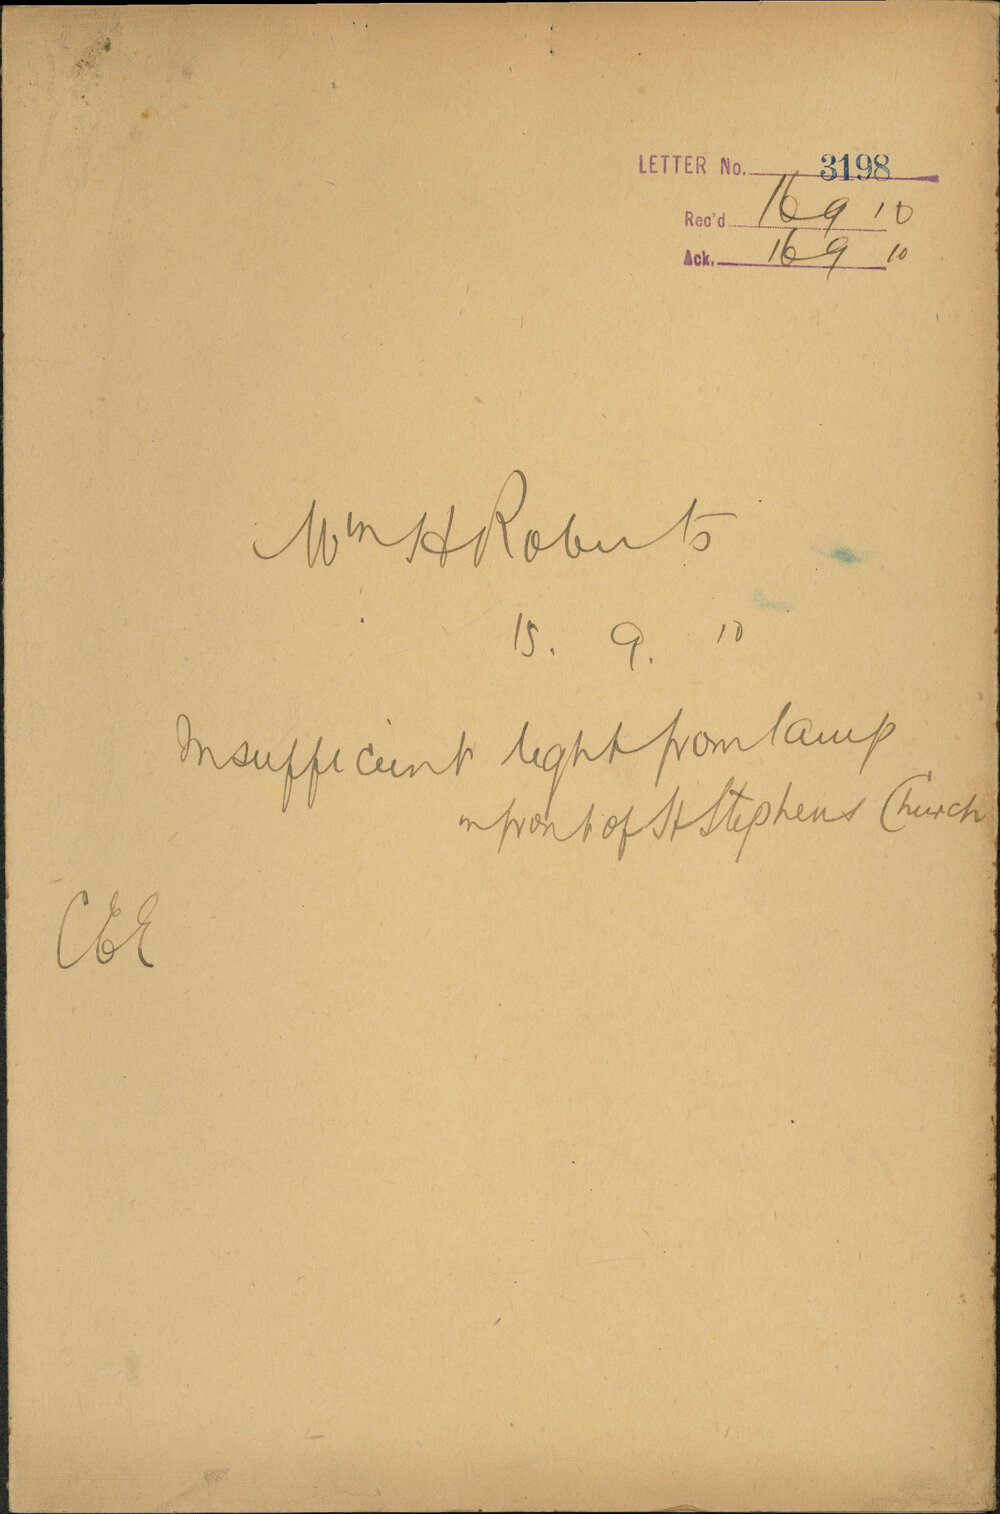 LETTER No. 3198
Rec'd 16 9 10
Ack. 16 9 10
Wm H Roberts
15. 9. 10
Insufficient light from lamp
in front of St Stephens Church
CEE